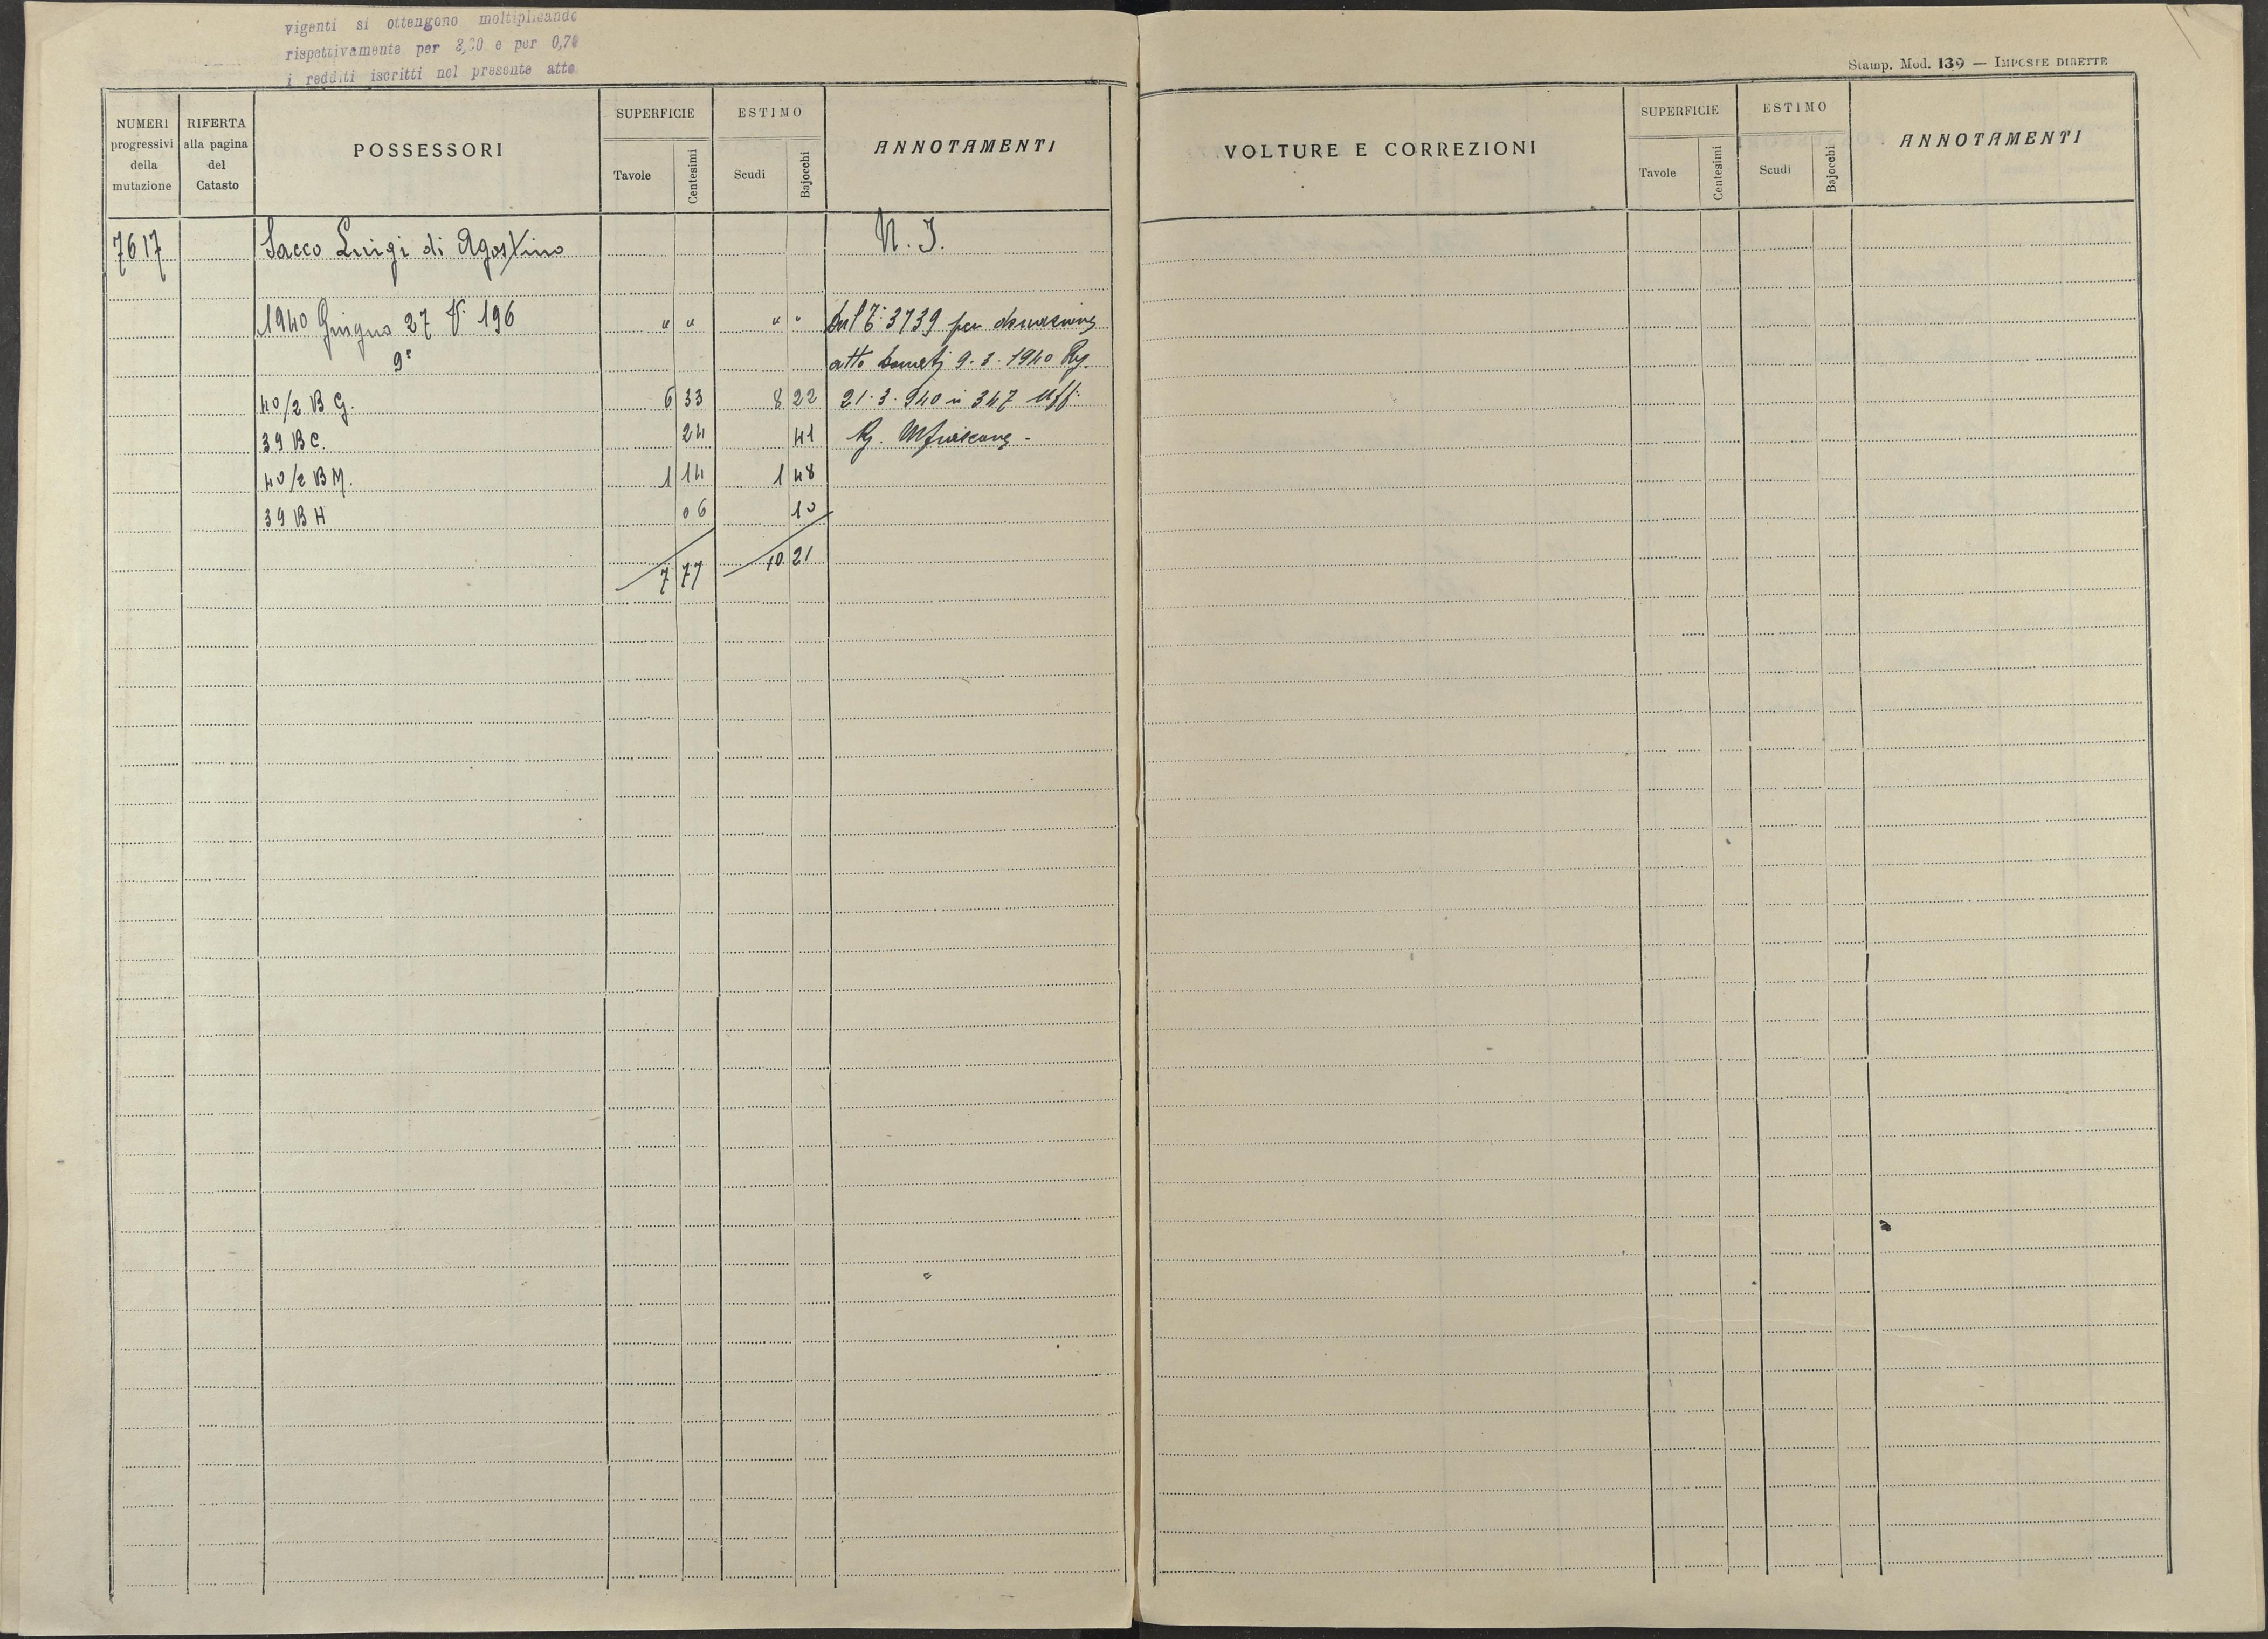 vigenti si ottengono moltiplicando
rispettivamente per 3,20 e per 0,70
i redditi iscritti nel presente atto
Stamp. Mod. 139 — IMPOSTE DIRETTE
NUMERI progressivi della mutazione
RIFERTA alla pagina del Catasto
POSSESSORI
SUPERFICIE
Tavole
Centesimi
ESTIMO
Scudi
Bajocchi
ANNOTAMENTI
VOLTURE E CORREZIONI
SUPERFICIE
Tavole
Centesimi
ESTIMO
Scudi
Bajocchi
ANNOTAMENTI
7617 Sacco Luigi di Agostino N. I.
1940 Giugno 27 V. 196 " " " " dal 3739 per donazione
9°
atto 9.3.1940 Rg.
40/2 B G. 6 33 8 22 21.3.940 n 347 Uff.
39 B C. 24 41 Rg.
40/2 B M. 1 14 1 48
39 B H 06 10
7 77 10 21